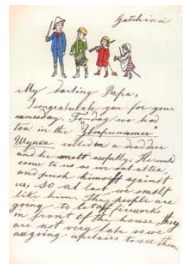 Gatchina
My darling Papa,
I congratulate you for your
namesday. To-day we had
tea in the
and he smelt awfully. He would
come to us as we sat at tea,
and push himself against
us, so at last we smelt
like him. The people are
going to fireworks
in front of the house, they
are not very late so we
are going upstairs to see them